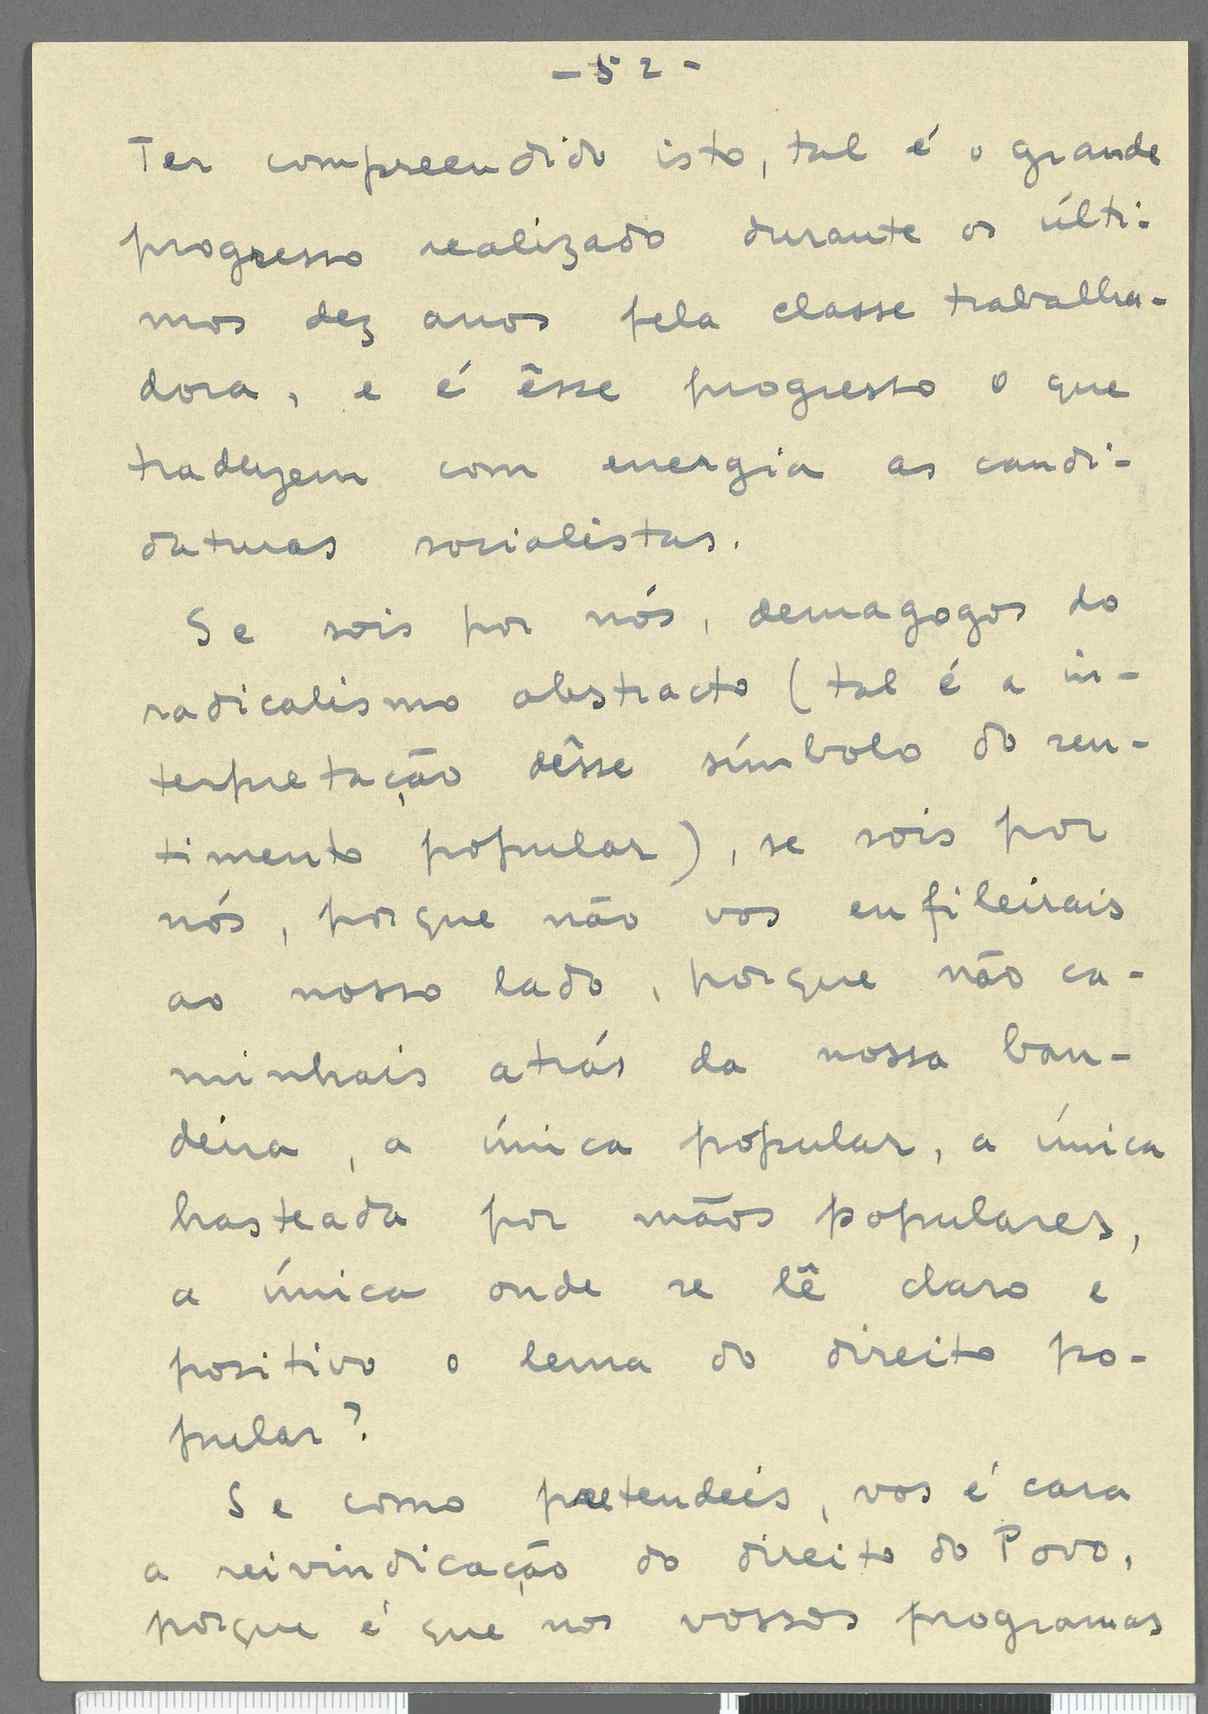 - 52 -
Ter compreendido isto, tal é o grande
progresso realizado durante os últi-
mos dez anos pela classe trabalha-
dora, e é êsse progresso o que
traduzem com energia as candi-
daturas socialistas.
Se sois por nós, demagogos do
radicalismo abstracto (tal é a in-
terpretação dêsse símbolo do sen-
timento popular), se sois por
nós, porque não vos enfileirais
ao nosso lado, porque não ca-
minhais atrás da nossa ban-
deira, a única popular, a única
hasteada por mãos populares,
a única onde se lê claro e
positivo o lema do direito po-
pular?
Se como pretendeis, vos é cara
a reivindicação do direito do Povo,
porque é que nos vossos programas